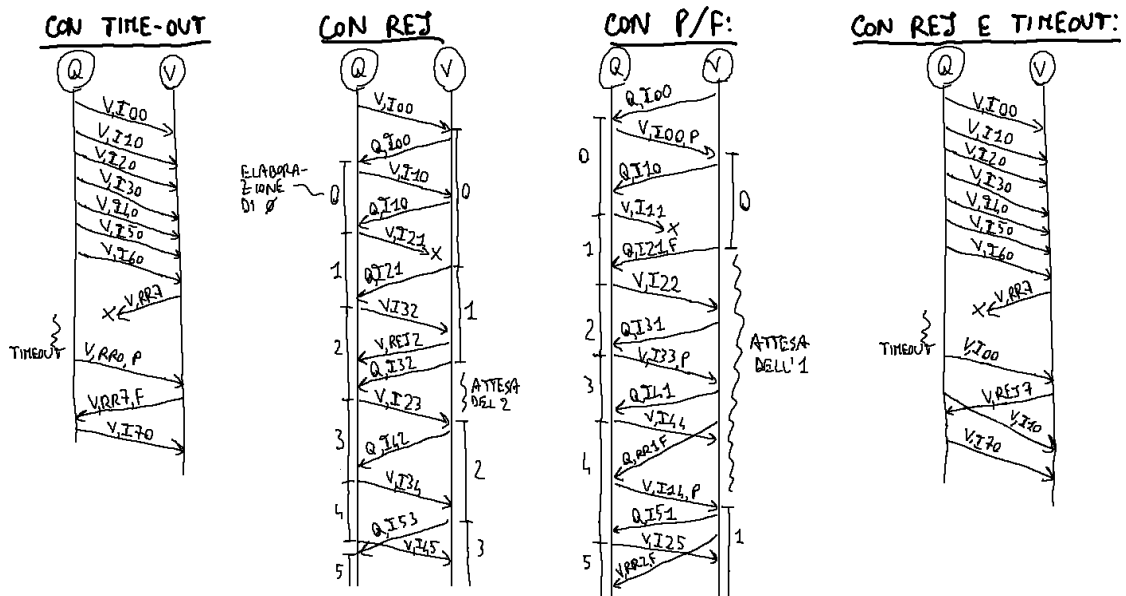 CON TIME-OUT
Q V
V,I00
V,I10
V,I20
V,I30
V,I40
V,I50
V,I60
V,RR7
X
TIMEOUT
V,RR0,P
V,RR7,F
V,I70
CON REJ
Q V
V,I00
Q,I00
V,I10
ELABORA-
ZIONE
DI Ø
0
0
Q,I10
V,I21
X
1
Q,I21
1
V,I32
V,REJ2
2
Q,I32
ATTESA
DEL 2
V,I23
3
Q,I42
2
V,I34
4
Q,I53
V,I45
3
5
CON P/F:
Q V
Q,I00
V,I00,P
0
Q,I10
0
V,I11
X
1
Q,I21,F
V,I22
2
Q,I31
ATTESA
DELL'1
V,I33,P
3
Q,I41
V,I44
Q,RR1F
4
V,I14,P
Q,I51
1
V,I25
5
V,RR2,F
CON REJ E TIMEOUT:
Q V
V,I00
V,I10
V,I20
V,I30
V,I40
V,I50
V,I60
V,RR7
X
TIMEOUT
V,I00
V,REJ7
V,I10
V,I70